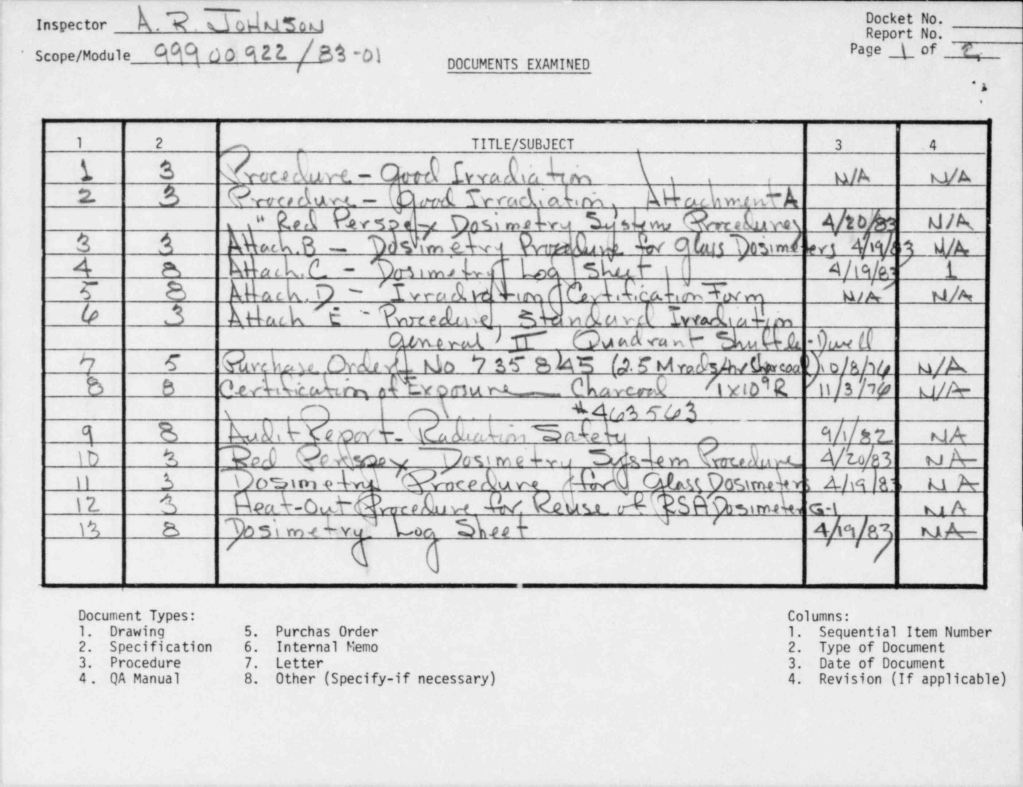 Inspector A. R. JOHNSON
Docket No.
Report No.
Scope/Module 99900922 / 83-01
Page 1 of 2
DOCUMENTS EXAMINED
1 2 TITLE/SUBJECT 3 4
1 3 Procedure - Good Irradiation N/A N/A
2 3 Procedure - Good Irradiation, Attachment A
"Red Perspex Dosimetry System Procedures 4/20/83 N/A
3 3 Attach. B - Dosimetry Procedure for Glass Dosimeters 4/19/83 N/A
4 8 Attach. C - Dosimetry Log Sheet 4/19/83 1
5 8 Attach. D - Irradiation Certification Form N/A N/A
6 3 Attach E - Procedure, Standard Irradiation
General, II Quadrant Shuffle-Dwell
7 5 Purchase Order No 735845 (2.5 Mrads/hr Charcoal) 10/8/76 N/A
8 8 Certification of Exposure Charcoal 1x10⁹R 11/3/76 N/A
#463563
9 8 Audit Report - Radiation Safety 9/1/82 NA
10 3 Red Perspex Dosimetry System Procedure 4/20/83 NA
11 3 Dosimetry Procedure for Glass Dosimeters 4/19/83 NA
12 3 Heat-Out Procedure for Reuse of RSA Dosimeter G-1 NA
13 8 Dosimetry Log Sheet 4/19/83 NA
Document Types:
1. Drawing
2. Specification
3. Procedure
4. QA Manual
5. Purchas Order
6. Internal Memo
7. Letter
8. Other (Specify-if necessary)
Columns:
1. Sequential Item Number
2. Type of Document
3. Date of Document
4. Revision (If applicable)